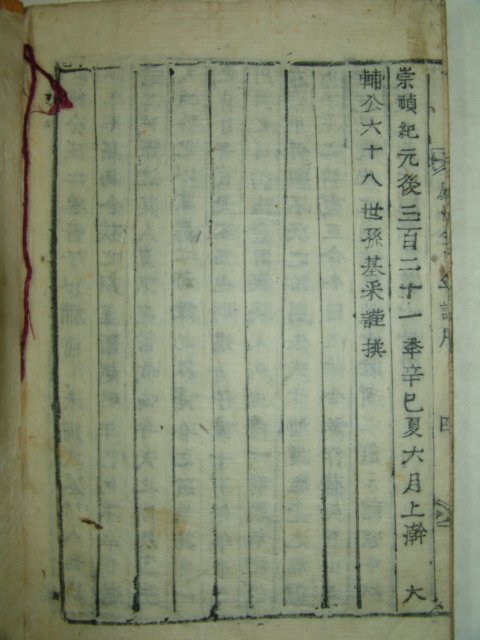 崇禎紀元後三百二十一季辛巳夏六月上澣 大
輔公六十八世孫基采謹撰